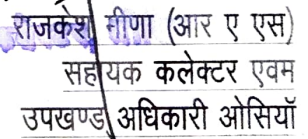 राजकेश मीणा (आर ए एस)
सहायक कलेक्टर एवम
उपखण्ड अधिकारी ओसियॉ